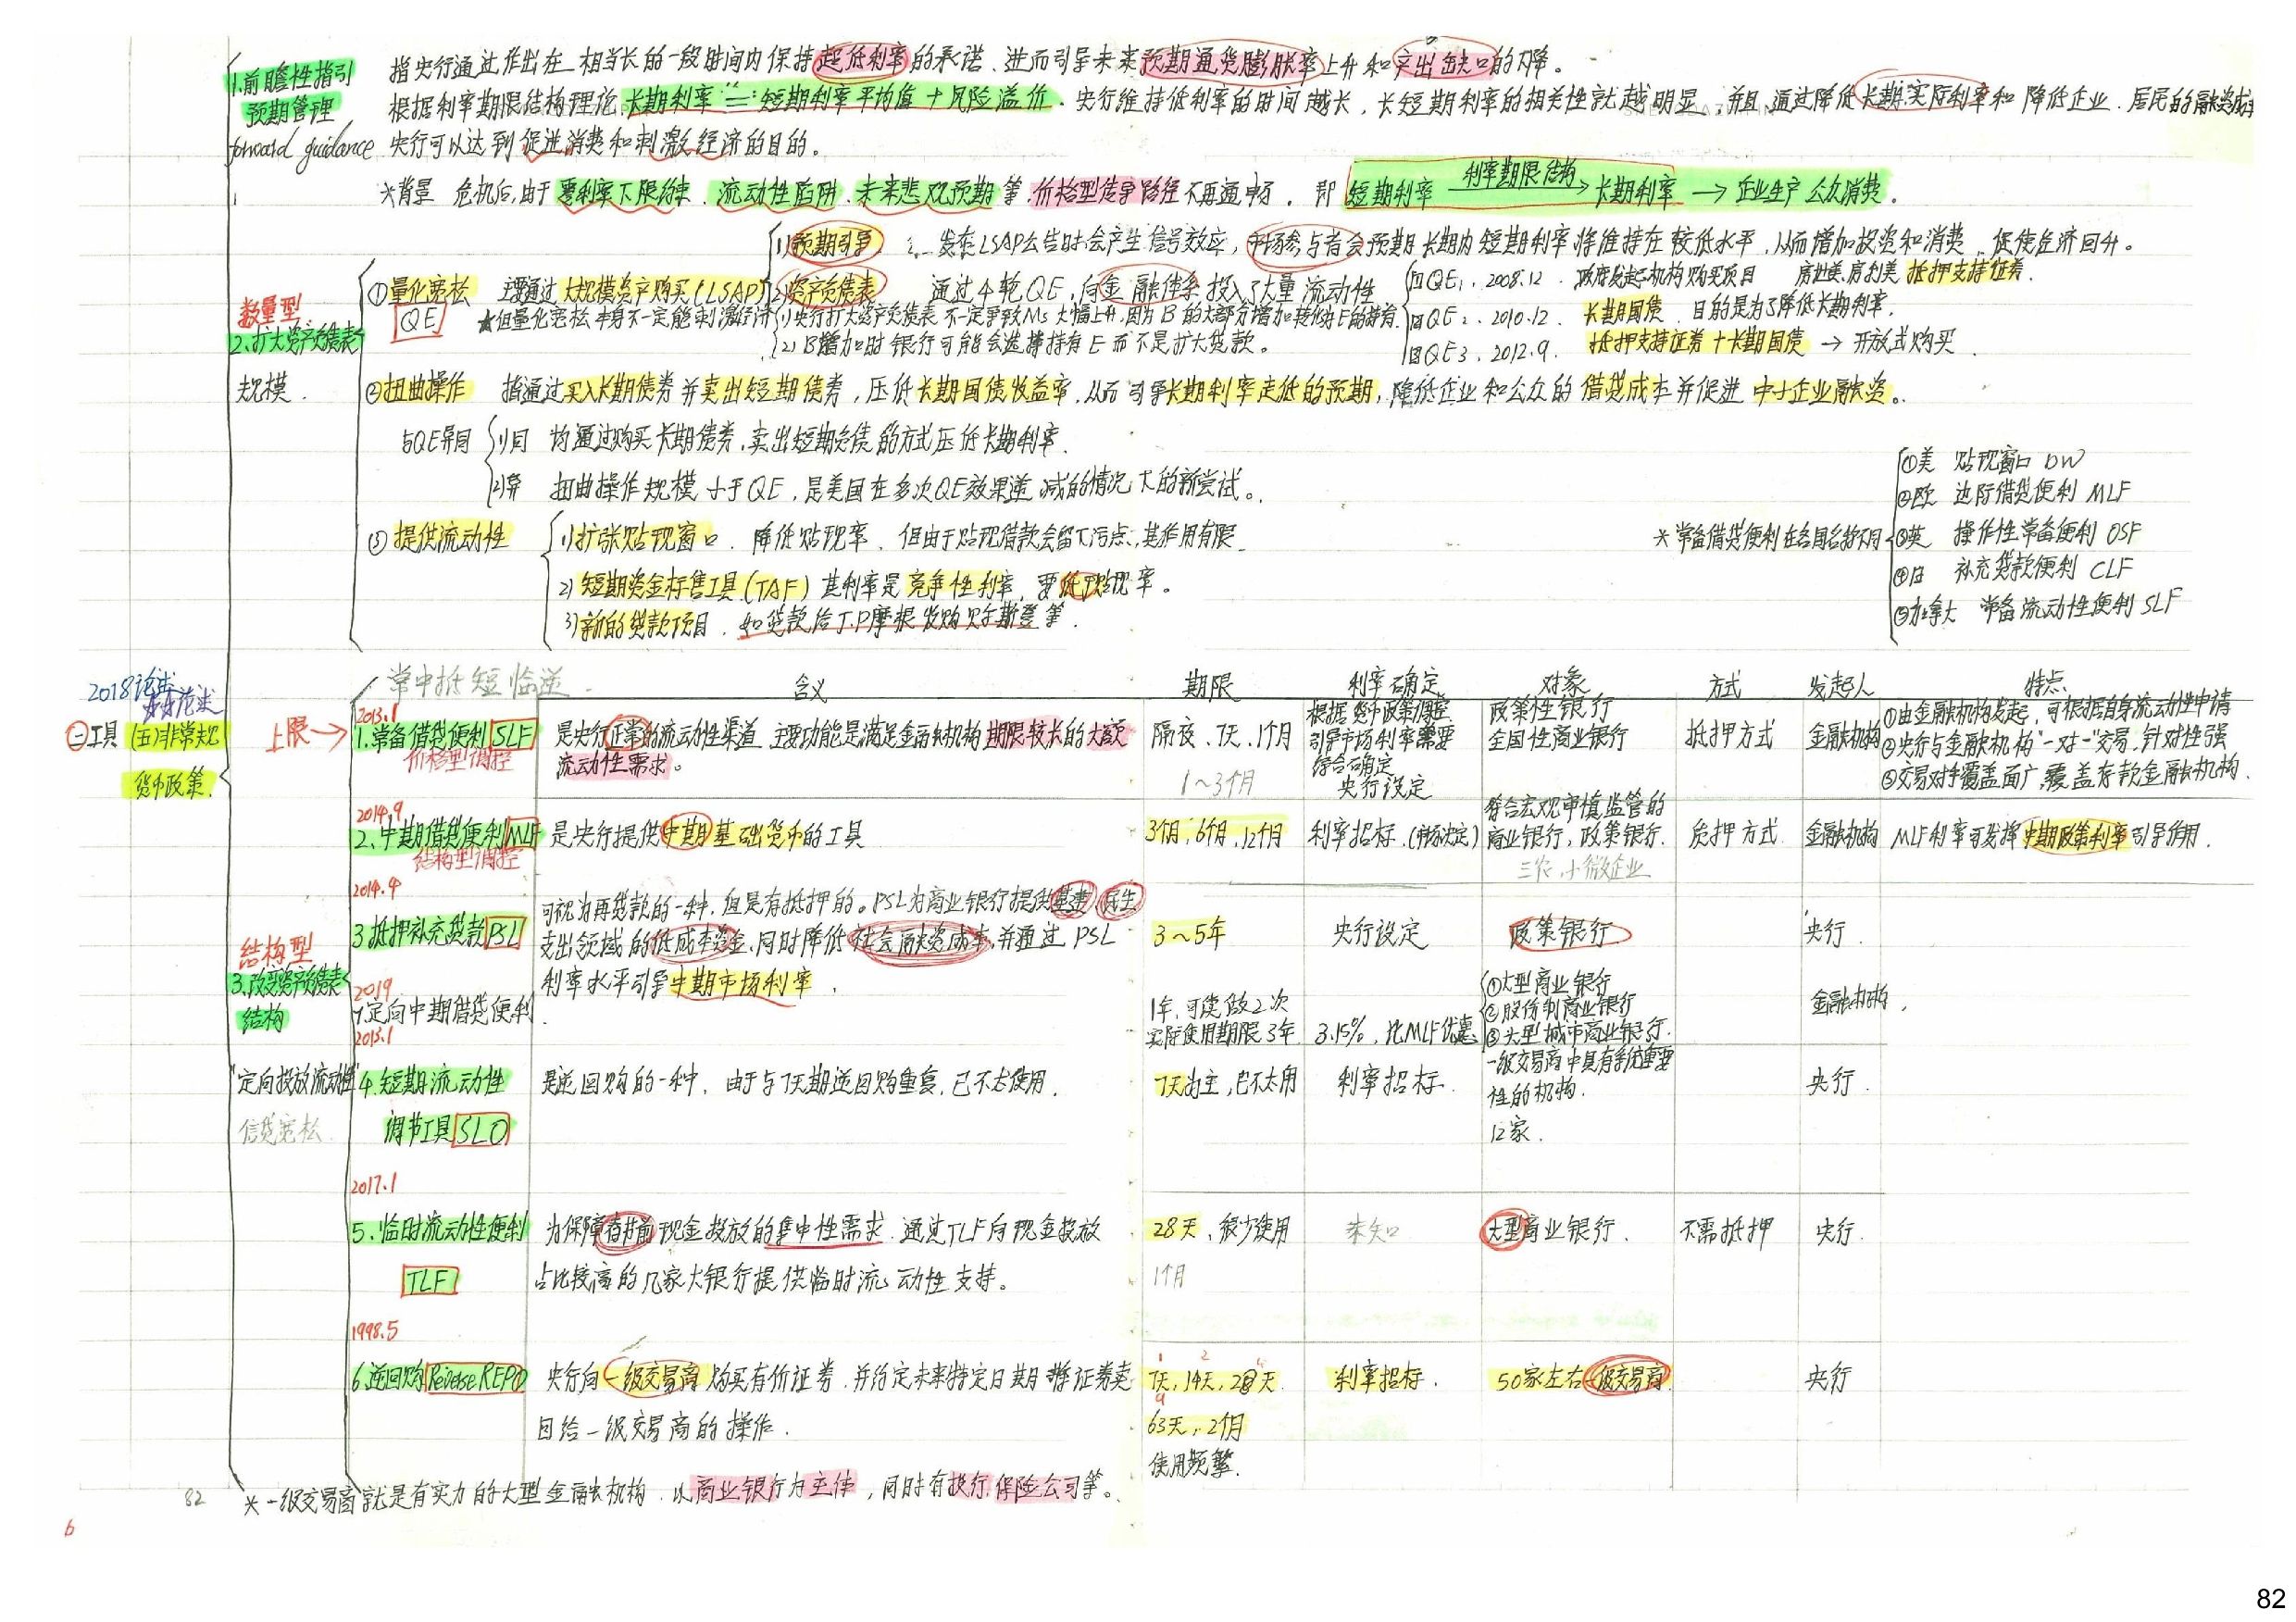 1.前瞻性指引
预期管理
forward guidance
指央行通过作出在相当长的一段时间内保持超低利率的承诺、进而引导未来预期通货膨胀率上升和产出缺口的下降。
根据利率期限结构理论,长期利率 = 短期利率平均值 + 风险溢价.央行维持低利率的时间越长,长短期利率的相关性就越明显.并且通过降低长期实际利率和降低企业.居民的融资成本
央行可以达到促进消费和刺激经济的目的。
*背景 危机后,由于零利率下限约束、流动性陷阱、未来悲观预期等,价格型传导路径不再通畅. 即 短期利率 利率期限结构→ 长期利率 → 企业生产 公众消费.
数量型
2.扩大资产负债表
规模.
①量化宽松 QE
主要通过大规模资产购买(LSAP)
1)预期引导: 发布LSAP公告时会产生信号效应,市场参与者会预期长期内短期利率将维持在较低水平,从而增加投资和消费,促使经济回升。
2)资产负债表 通过4轮QE,向金融体系投入了大量流动性
QE1, 2008.12. 政府发起机构购买项目 房地美.房利美 抵押支持证券.
QE2. 2010.12. 长期国债. 目的是为了降低长期利率.
QE3. 2012.9. 抵押支持证券+长期国债 → 开放式购买.
★但量化宽松本身不一定能刺激经济
(1)央行扩大资产负债表不一定导致Ms大幅上升,因为B的大部分增加转化为E的持有.
(2)B增加时银行可能会选择持有E而不是扩大贷款。
②扭曲操作 指通过买入长期债券并卖出短期债券,压低长期国债收益率.从而引导长期利率走低的预期,降低企业和公众的借贷成本并促进中小企业融资.
与QE异同
1)同 均通过购买长期债券,卖出短期负债的方式压低长期利率.
2)异 扭曲操作规模小于QE,是美国在多次QE效果递减的情况下的新尝试。
③提供流动性
1)扩张贴现窗口. 降低贴现率、但由于贴现借款会留下污点,其作用有限
2)短期资金标售工具(TAF) 其利率是竞争性利率,要低于贴现率。
3)新的贷款项目.如贷款给J.P摩根收购贝尔斯登等.
*常备借贷便利在各国名称不同
①美 贴现窗口 DW
②欧 边际借贷便利 MLF
③英 操作性常备便利 OSF
④日 补充贷款便利 CLF
⑤加拿大 常备流动性便利 SLF
2018论述
㊁工具 (五)非常规
货币政策.
上限→
常中抵短临逆
含义 期限 利率确定 对象 方式 发起人 特点
2013.1
1.常备借贷便利 SLF
价格型调控
是央行正常的流动性渠道 主要功能是满足金融机构期限较长的大额
流动性需求。
隔夜、7天、1个月
1~3个月
根据货币政策调控.
引导市场利率需要
综合确定
央行设定
政策性银行
全国性商业银行
抵押方式
金融机构
①由金融机构发起,可根据自身流动性申请
②央行与金融机构"一对一"交易,针对性强
③交易对手覆盖面广,覆盖存款金融机构.
2014.9
2.中期借贷便利 MLF
结构型调控
是央行提供中期基础货币的工具
3个月,6个月,12个月
利率招标.(市场决定)
符合宏观审慎监管的
商业银行,政策银行.
三农,小微企业
质押方式
金融机构
MLF利率可发挥中期政策利率引导作用.
结构型
3.改变资产负债表
结构
"定向投放流动性"
信贷宽松
2014.4
3抵押补充贷款 PSL
可视为再贷款的一种,但是有抵押的。PSL为商业银行提供基建,民生
支出领域的低成本资金,同时降低社会融资成本,并通过PSL
利率水平引导中期市场利率.
3~5年
央行设定
政策银行
央行.
2019
7.定向中期借贷便利
1年,可续做2次
实际使用期限3年
3.15%,比MLF优惠
①大型商业银行
②股份制商业银行
③大型城市商业银行.
金融机构.
2013.1
4.短期流动性
调节工具 SLO
是逆回购的一种, 由于与7天期逆回购重复,已不太使用.
7天为主,已不太用
利率招标.
一级交易商中具有系统重要
性的机构.
12家.
央行.
2017.1
5.临时流动性便利
TLF
为保障春节前现金投放的集中性需求.通过TLF向现金投放
占比较高的几家大银行提供临时流动性支持。
28天,很少使用
1个月
未知
大型商业银行.
不需抵押
央行.
1998.5
6逆回购 Reverse REPO
央行向一级交易商购买有价证券,并约定未来特定日期将证券卖
回给一级交易商的操作.
7天,14天,28天
63天,2个月
使用频繁.
利率招标.
50家左右一级交易商
央行
*一级交易商就是有实力的大型金融机构.以商业银行为主体,同时有投行,保险公司等。
82
6
82